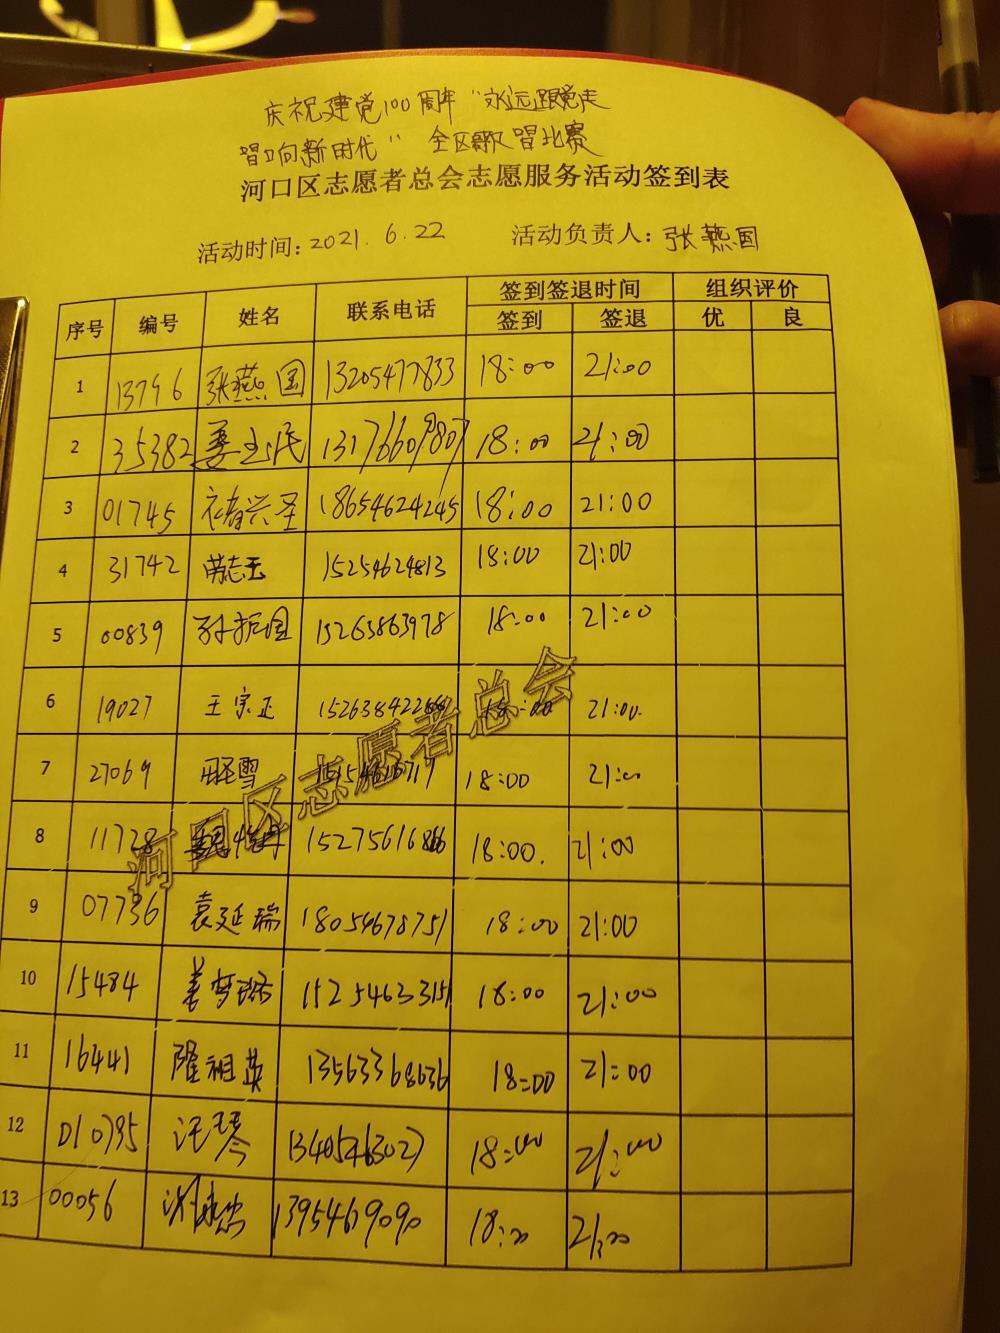 庆祝建党100周年"永远跟党走
唱响新时代" 全区歌唱比赛
河口区志愿者总会志愿服务活动签到表
活动时间:2021.6.22 活动负责人:张燕国
序号 编号 姓名 联系电话 签到签退时间 组织评价
签到 签退 优 良
1 13796 张燕国 13205477833 18:00 21:00
2 35382 姜玉民 18:00 21:00
3 01745 18654624245 18:00 21:00
4 31742 15254624813 18:00 21:00
5 00839 孙振国 15263863978 18:00 21:00
6 19027 王宗正 18:00 21:00.
7 27069 18:00 21:00
8 11728 18:00. 21:00
9 07736 袁延瑞 18054678751 18:00 21:00
10 15484 姜梦璐 15254633151 18:00 21:00
11 16441 隆祖英 13563368636 18:00 21:00
12 汪琴 18:00 21:00
13 00056 13954619090 18:00 21:00
河口区志愿者总会